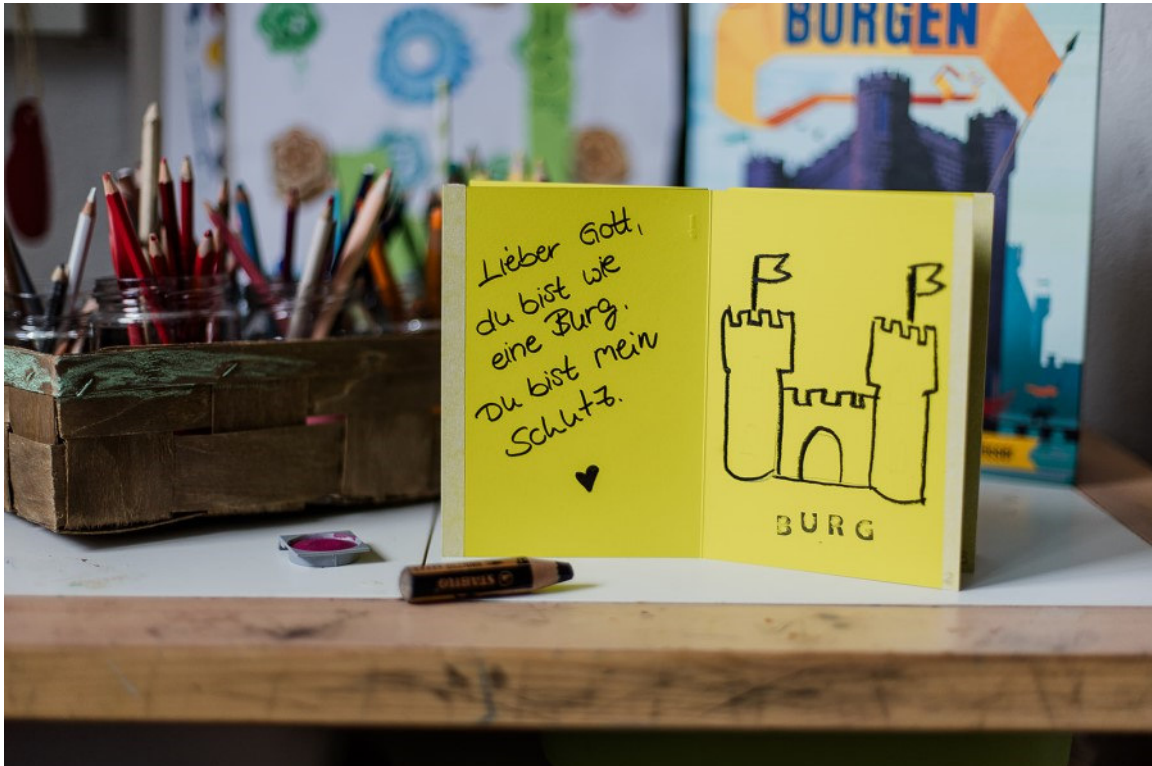 BURGEN
Lieber Gott,
du bist wie
eine Burg.
Du bist mein
Schutz.
BURG
2
STABILO